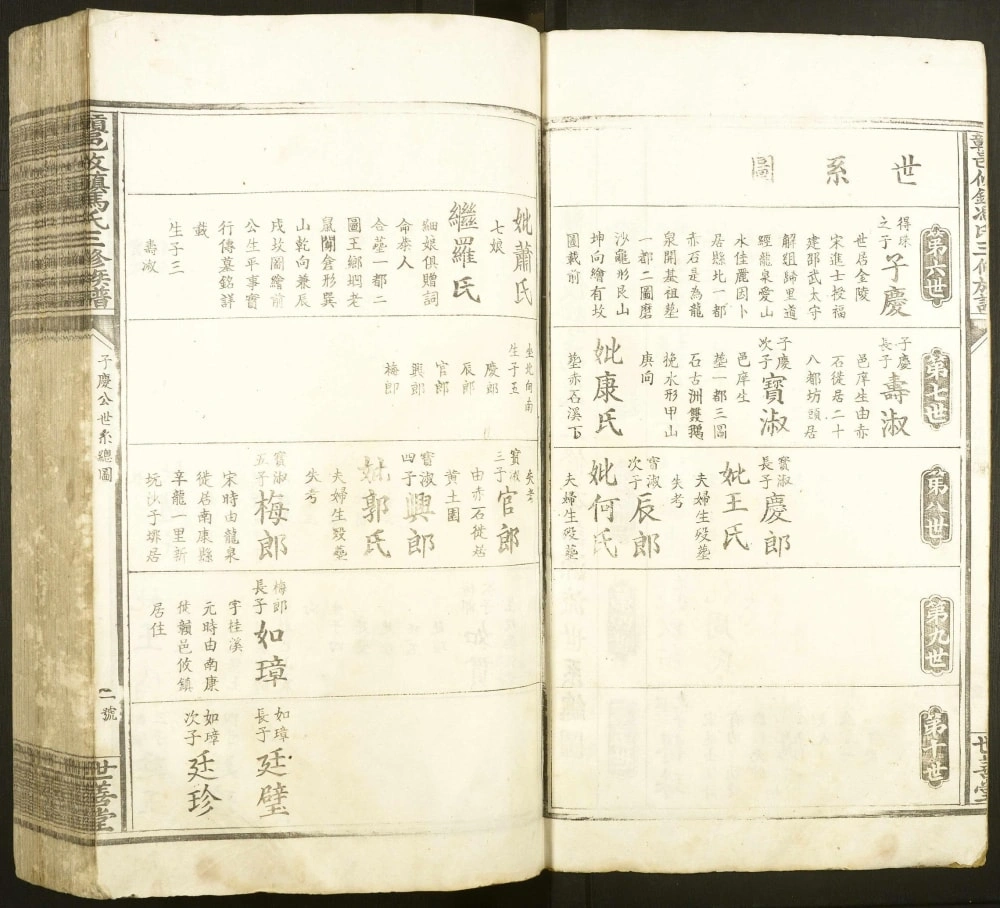 世系圖
第六世
得珠之子
子慶
世居金陵
宋進士授福
建邵武太守
解組歸里道
經龍泉愛山
水佳麗因卜
居縣北一都
赤石是為龍
泉開基祖塟
一都二圖磨
沙雞形艮山
坤向繪有坟
圖載前
妣蕭氏
七娘
繼羅氏
細娘俱贈詞
命夫人
合塟一都二
圖王鄉垇老
鼠鬧倉形巽
山乾向兼辰
戌坟圖繪前
公生平事實
行傳墓銘詳
載
生子三
壽淑
第七世
子慶長子
壽淑
邑庠生由赤
石徙居二十
八都坊頭居
子慶次子
寶淑
邑庠生
塟一都三圖
石古洲雙鵝
挽水形甲山
庚向
妣康氏
塟赤石溪下
坐北向南
生子五
慶郎
辰郎
官郎
興郎
梅郎
第八世
寶淑長子
慶郎
妣王氏
夫婦生殁塟
失考
寶淑次子
辰郎
妣何氏
夫婦生殁塟
失考
寶淑三子
官郎
由赤石徙居
黄土圍
寶淑四子
興郎
妣郭氏
夫婦生殁塟
失考
寶淑五子
梅郎
宋時由龍泉
徙居南康縣
辛龍一里新
玩沙子排居
第九世
梅郎長子
如璋
字桂溪
元時由南康
徙贛邑攸鎮
居住
第十世
如璋長子
廷璧
如璋次子
廷珍
贛邑攸鎮馮氏三修族譜
子慶公世系總圖
二號
世善堂
世善堂